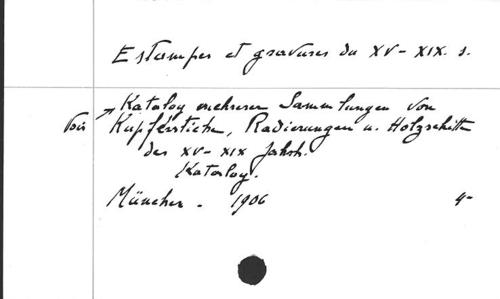 Estampes et gravures du XV - XIX. s.
Katalog mehrerer Sammlungen von
Voir Kupferstichen, Radierungen u. Holzschitte
des XV - XIX Jahrh.
Katalog.
München - 1906 4°